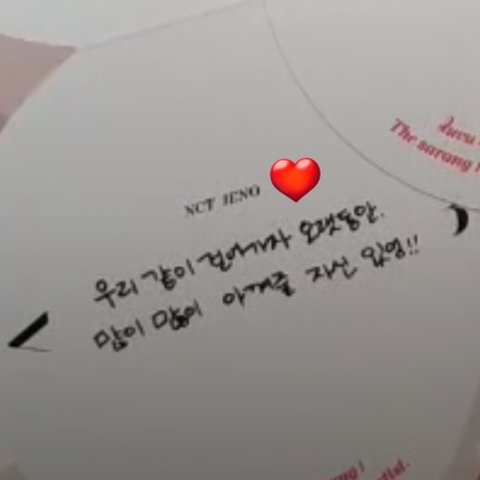 The sarang
NCT JENO
우리 같이 걸어가자 오랫동안.
많이 많이 아껴줄 자신 있엉!!